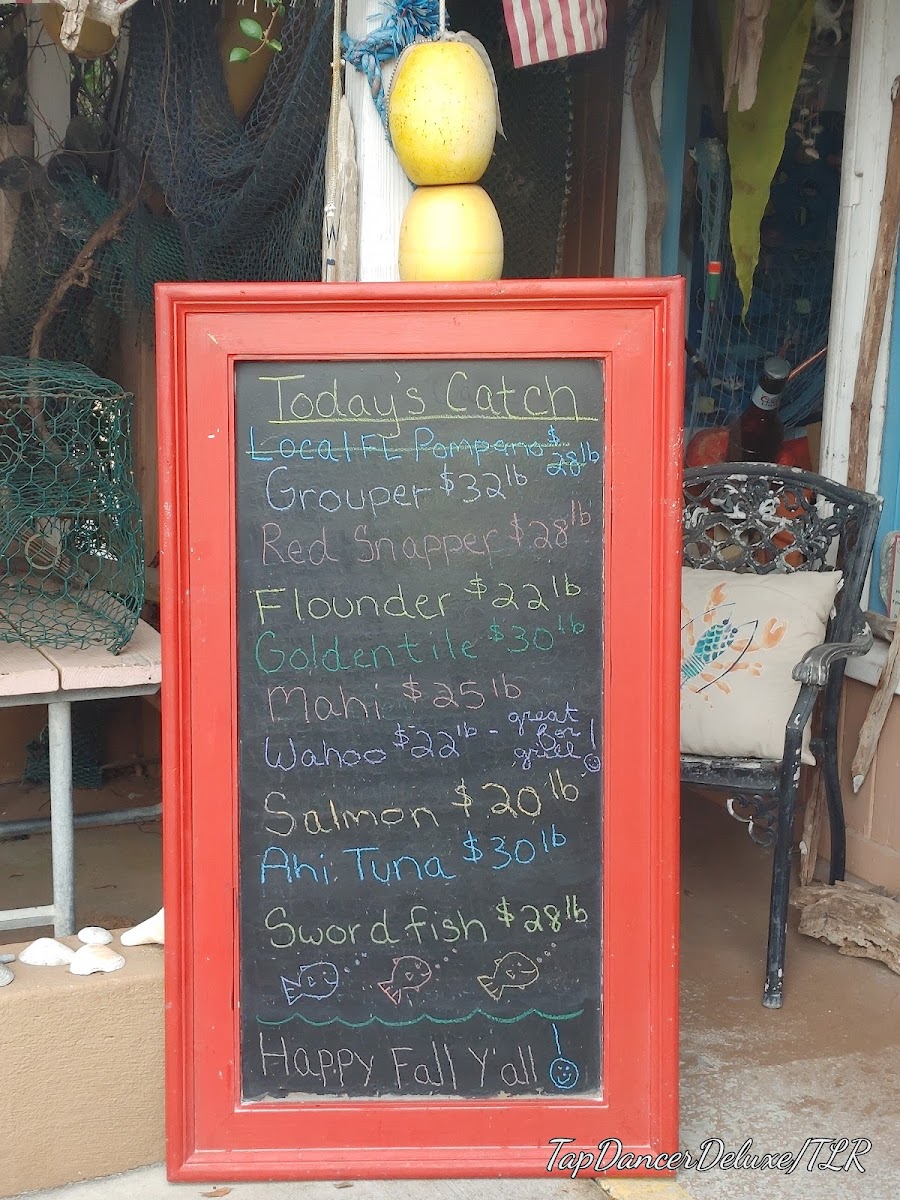 Today's Catch
Local FL Pompano $28lb
Grouper $32lb
Red Snapper $28lb
Flounder $22lb
Goldentile $30lb
Mahi $25lb
Wahoo $22lb - great for grill!
Salmon $20lb
Ahi Tuna $30lb
Swordfish $28lb
Happy Fall Y'all!
TapDancerDeluxe/TLR